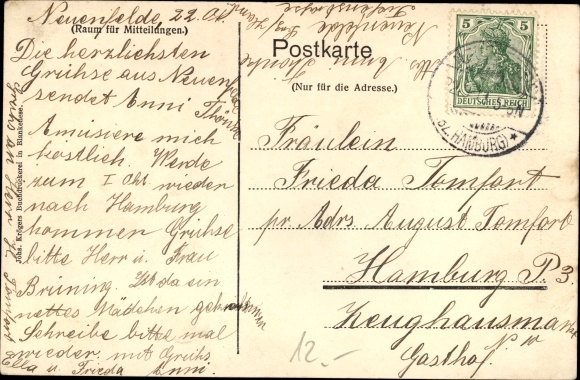 Neuenfelde, 22.
(Raum für Mitteilungen.)
Die herzlichsten
Grühse aus Neuenfelde
sendet Anni
Amüsiere mich
köstlich. Werde
zum I Okt wieder
nach Hamburg
kommen Grühse
bitte Herr u. Frau
Brüning. Ist da ein
nettes Mädchen gekommen
Schreibe bitte mal
wieder mit Gruhs
Ella u Frieda Anni.
Johs. Krögers Buchdruckerei in Blankenese.
Neuenfelde
Postkarte
(Nur für die Adresse.)
5 5
DEUTSCHES REICH
(BZ. HAMBURG)
Fräulein
Frieda Tomfort
pr Adrs August Tomfort
Hamburg P3.
Zeughausmarkt
Gasthof No 10
12.-